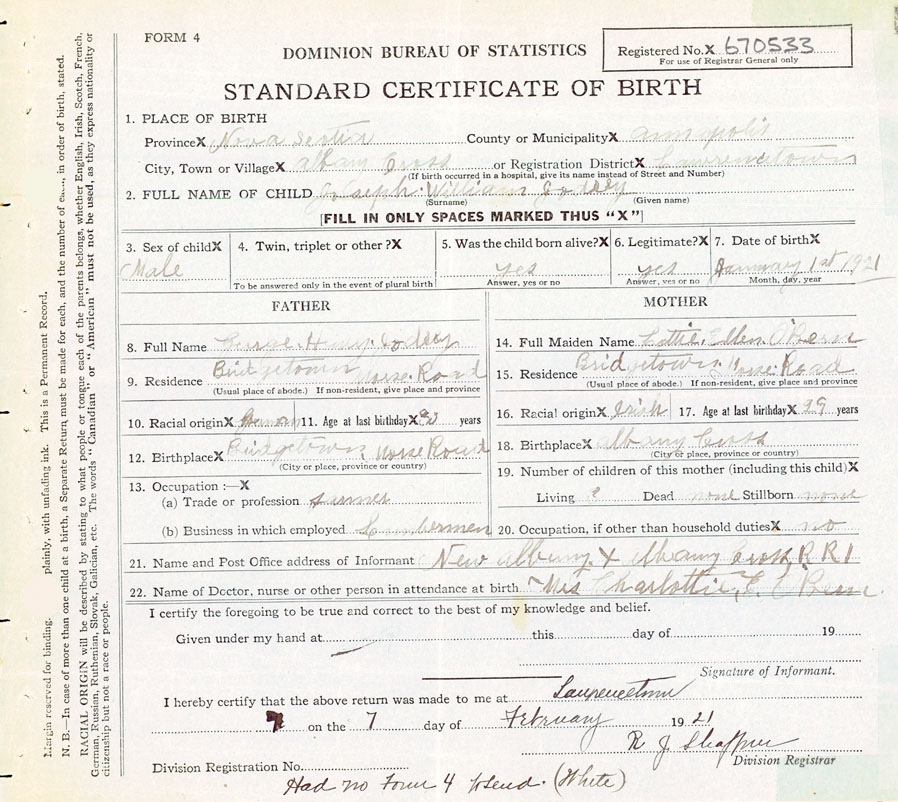 FORM 4
DOMINION BUREAU OF STATISTICS
Registered No. X 670533
For use of Registrar General only
STANDARD CERTIFICATE OF BIRTH
1. PLACE OF BIRTH
Province X Nova Scotia County or Municipality X annapolis
City, Town or Village X albany Cross or Registration District X Lawrencetown
(If birth occurred in a hospital, give its name instead of Street and Number)
2. FULL NAME OF CHILD Joseph William
(Surname) (Given name)
[FILL IN ONLY SPACES MARKED THUS "X"]
3. Sex of child X 4. Twin, triplet or other ? X 5. Was the child born alive? X 6. Legitimate? X 7. Date of birth X
Male yes yes January 1st 1921
To be answered only in the event of plural birth Answer, yes or no Answer, yes or no Month, day, year
FATHER
8. Full Name
9. Residence Bridgetown Morse Road
(Usual place of abode.) If non-resident, give place and province
10. Racial origin X 11. Age at last birthday X years
12. Birthplace X Bridgetown Morse Road
(City or place, province or country)
13. Occupation :—X
(a) Trade or profession
(b) Business in which employed Lumbermen
MOTHER
14. Full Maiden Name Lottie Ellen
15. Residence Bridgetown Morse Road
(Usual place of abode.) If non-resident, give place and province
16. Racial origin X Irish 17. Age at last birthday X 29 years
18. Birthplace X albany Cross
(City or place, province or country)
19. Number of children of this mother (including this child) X
Living Dead none Stillborn none
20. Occupation, if other than household duties X no
21. Name and Post Office address of Informant New albany X albany Cross R R 1
22. Name of Doctor, nurse or other person in attendance at birth Mrs Charlottie E.
I certify the foregoing to be true and correct to the best of my knowledge and belief.
Given under my hand at this day of 19
Signature of Informant.
I hereby certify that the above return was made to me at Lawrencetown
7 on the 7 day of February 1921
R J Shaffner
Division Registrar
Division Registration No.
Had no Form 4 to send. (White)
Margin reserved for binding. plainly, with unfading ink. This is a Permanent Record.
N. B.—In case of more than one child at a birth, a Separate Return must be made for each, and the number of each, in order of birth, stated.
RACIAL ORIGIN will be described by stating to what people or tongue each of the parents belongs, whether English, Irish, Scotch, French,
German, Russian, Ruthenian, Slovak, Galician, etc. The words "Canadian" or "American" must not be used, as they express nationality or
citizenship but not a race or people.